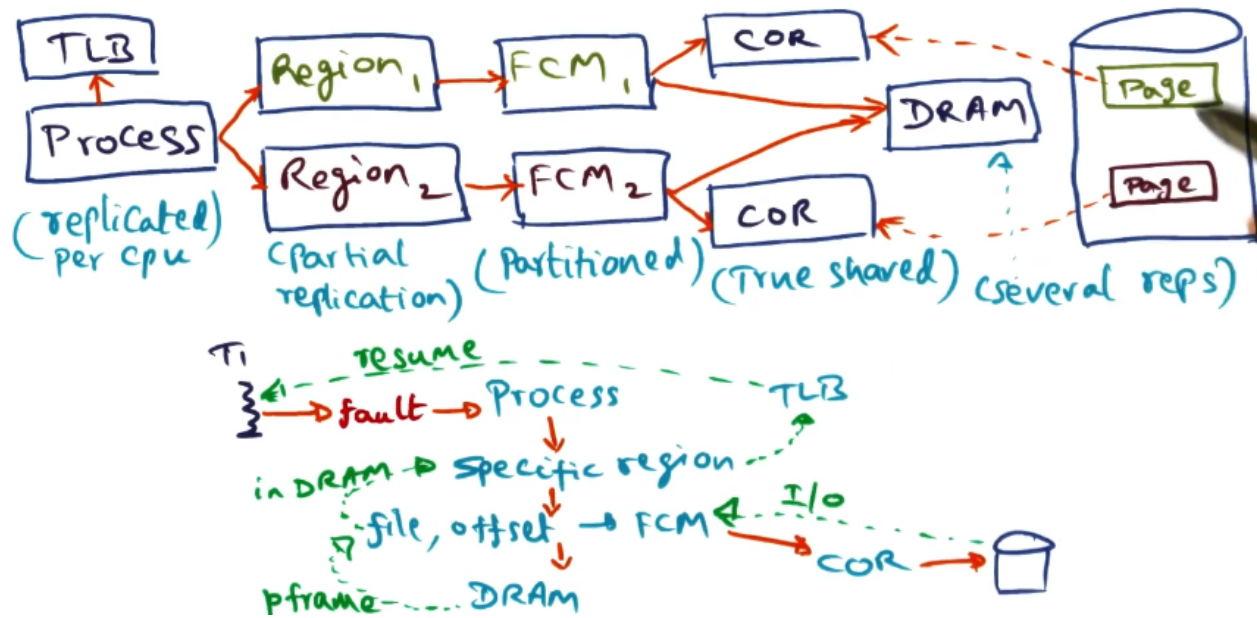 TLB
Process
(replicated)
per cpu
Region 1
Region 2
(Partial
replication)
FCM 1
FCM 2
(Partitioned)
COR
COR
(True shared)
DRAM
(several reps)
Page
Page
T1
resume
fault
Process
TLB
in DRAM
specific region
file, offset
FCM
I/O
COR
pframe
DRAM